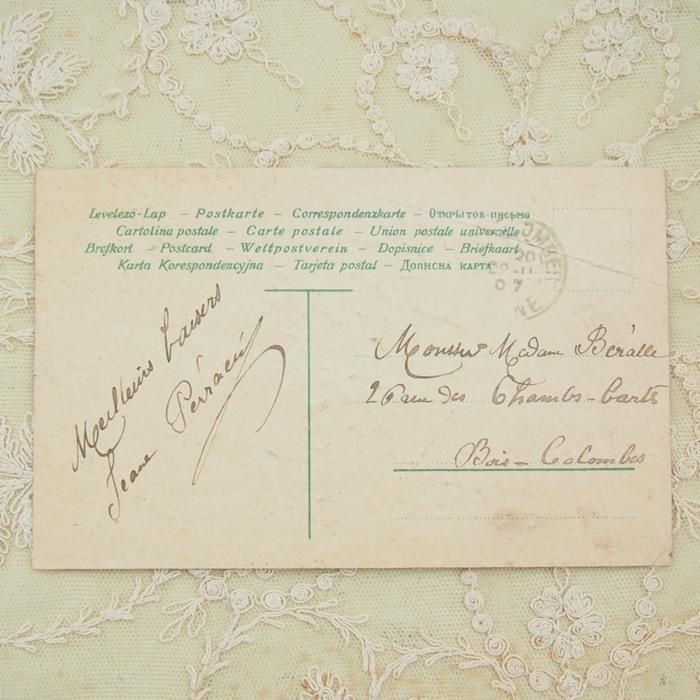 Levelezö-Lap – Postkarte – Correspondenzkarte – Открытов-письмо
Cartolina postale – Carte postale – Union postale universelle
Brefkort – Postcard – Weltpostverein – Dopisnice – Briefkaart
Karta Korespondencyjna – Tarjeta postal – Дописна карта
OMBES
20
11
07
NE
Meilleurs baisers
Jeane
Monsieur Madame Béralle
26 rue des Chambs-barts
Bois-Colombes